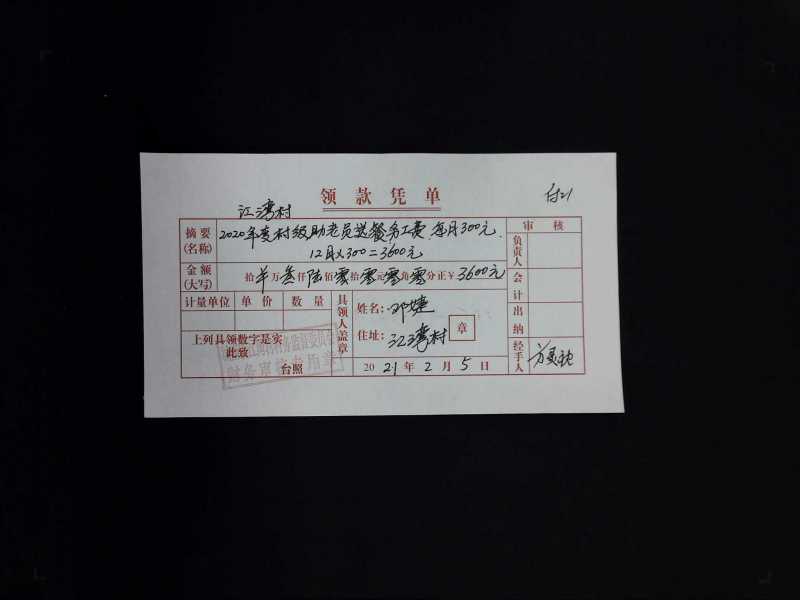 领款凭单
付21
江湾村
摘要(名称) 2020年度村级助老员送餐务工费,每月300元,
12月×300=3600元
审核
负责人
金额(大写) 拾 万叁仟陆佰零拾零元零角零分正¥3600元
会计
计量单位 单价 数量
具领人盖章
姓名:邓婕
出纳
住址:江湾村
章
上列具领数字是实
此致
台照
财务审核专用章
2021年2月5日
经手人